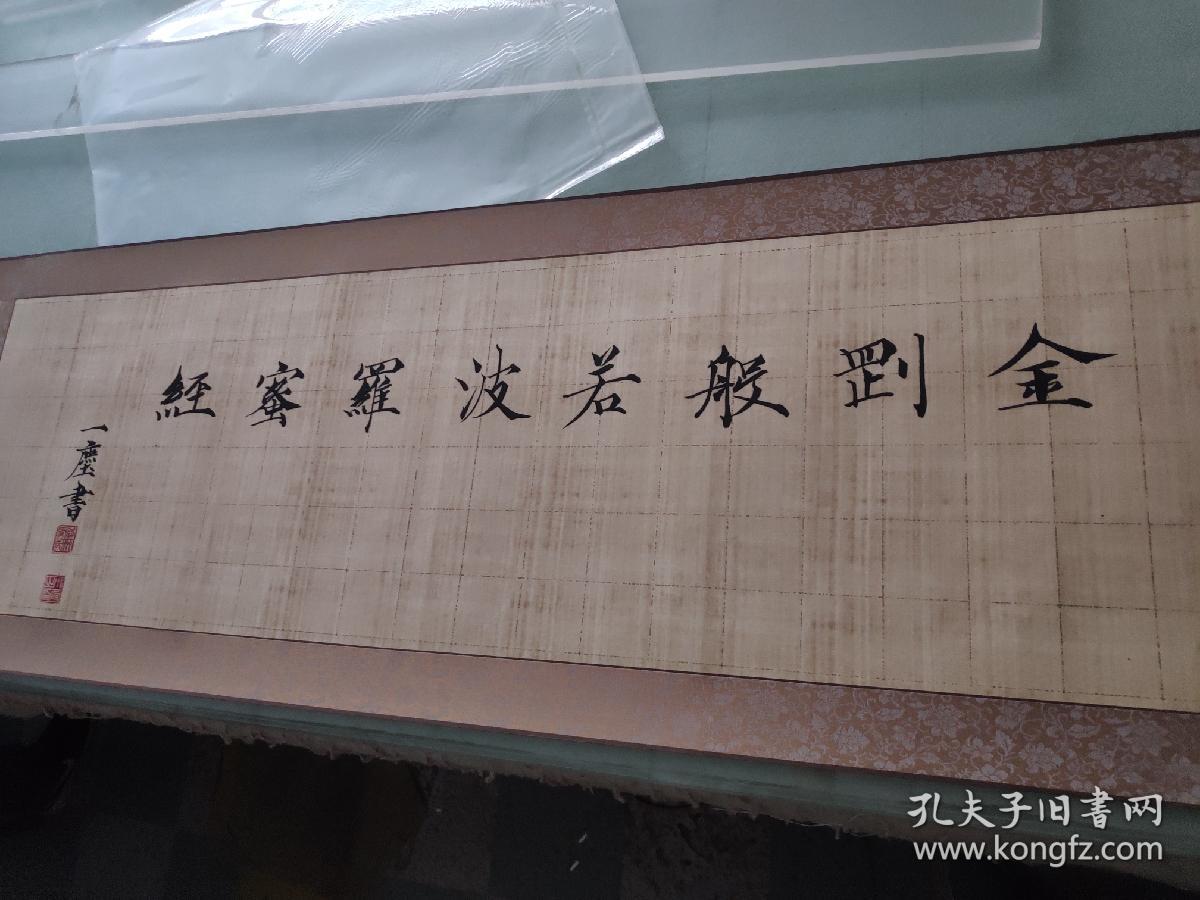 金㓻般若波羅蜜經
一塵書
孔夫子旧書网
www.kongfz.com